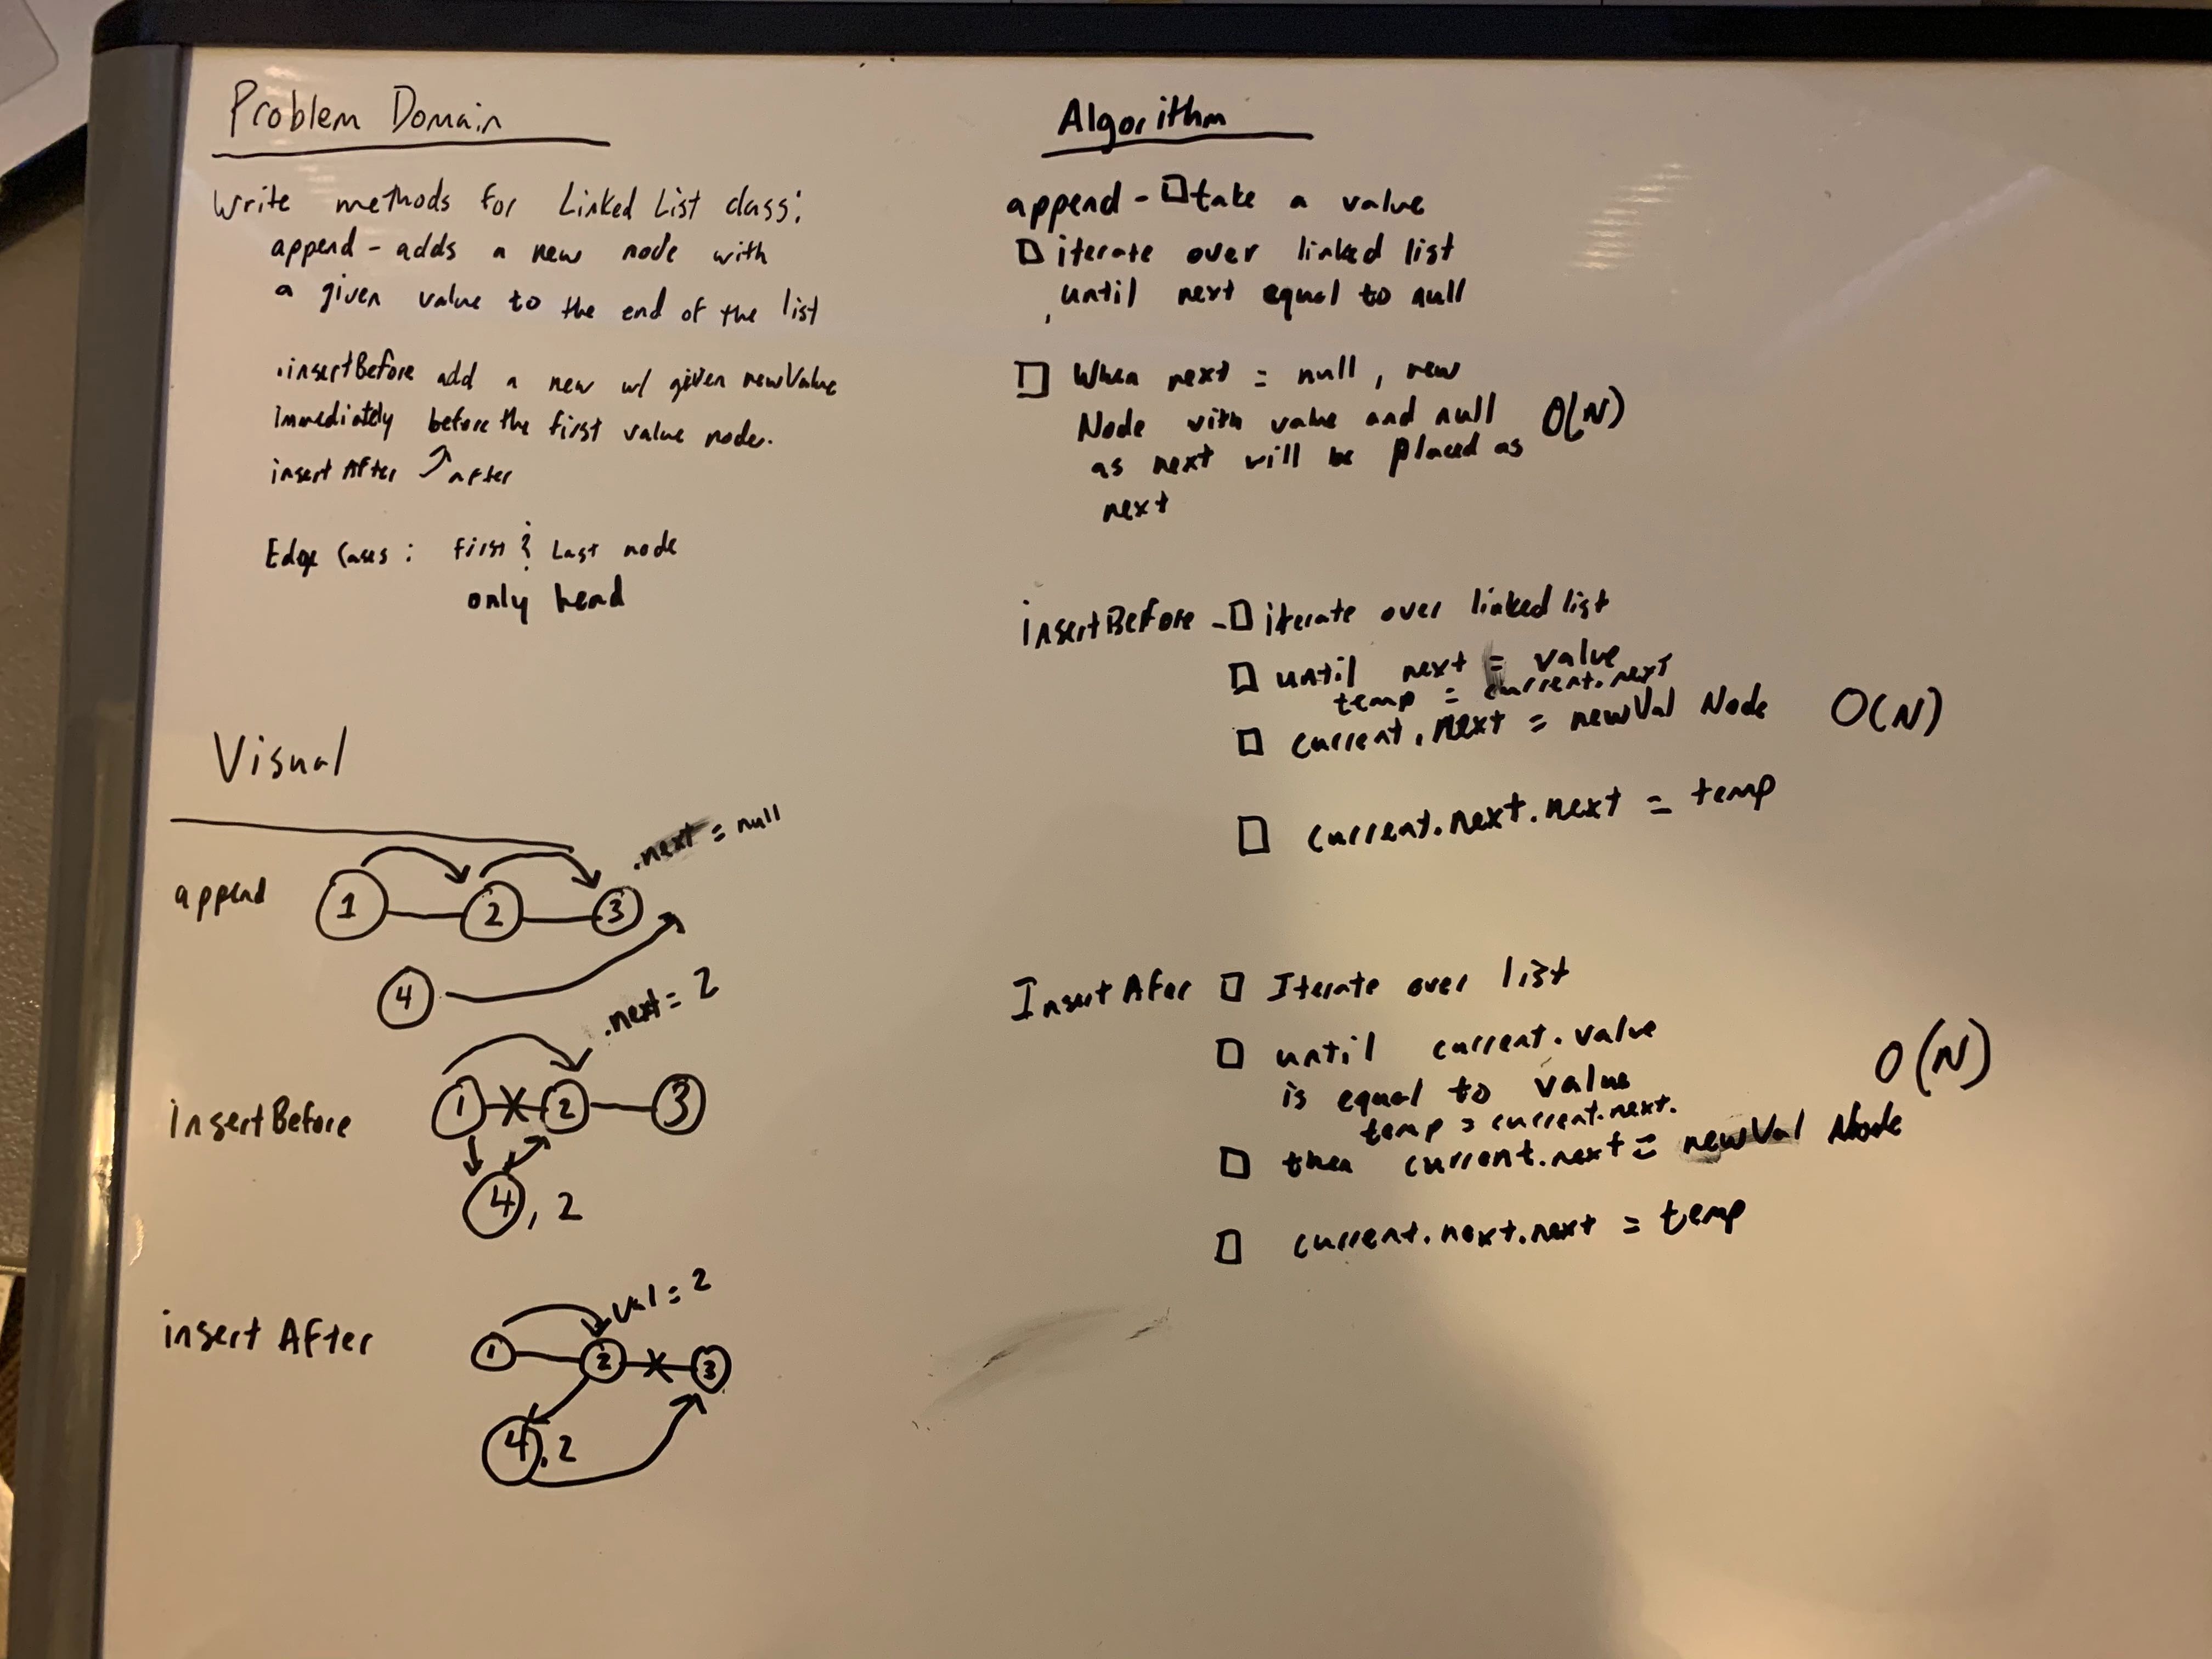 Problem Domain
Write methods for Linked List class:
append - adds a new node with
a given value to the end of the list
.insertBefore add a new w/ given newValue
Immediately before the first value node.
insert After after
Edge Cases: first & Last node
only head
Visual
append 1 2 3 .next = null
4
insertBefore 1 2 3 .next = 2
4, 2
insert After 1 2 3 val = 2
4, 2
Algorithm
append - take a value
iterate over linked list
until next equal to null
When next = null, new
Node with value and null O(N)
as next will be placed as
next
insertBefore - iterate over linked list
until next = value
temp = current.next
current.next = newVal Node O(N)
current.next.next = temp
Insert Afer Iterate over list
until current.value
is equal to value O(N)
temp = current.next.
then current.next = newVal Node
current.next.next = temp